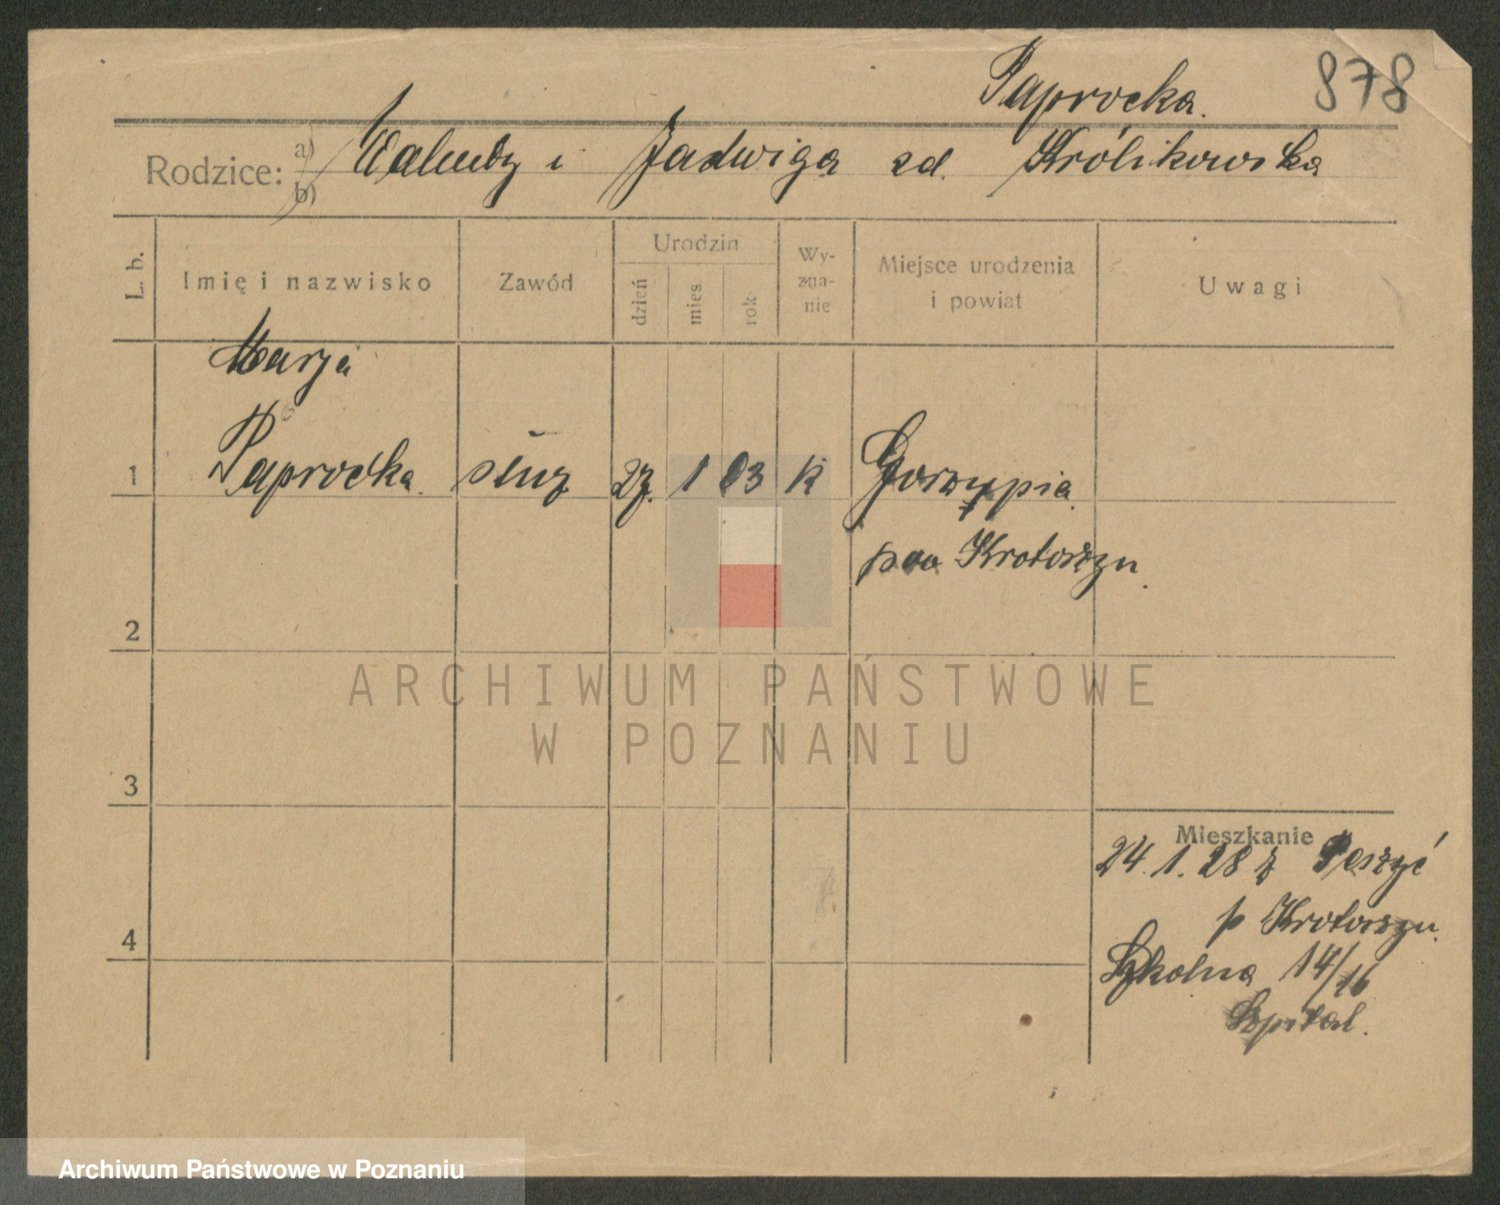 Paprocka. 878
Rodzice: a) Walenty i Jadwiga zd. Królikowska
b)
L. b. Imię i nazwisko Zawód Urodzin dzień mies. rok Wy-zna-nie Miejsce urodzenia i powiat Uwagi
Marja
1 Paprocka. służ 27. 1 03 k Gorzupia.
pow Krotoszyn.
2
ARCHIWUM PAŃSTWOWE
W POZNANIU
3
Mieszkanie
24.1.28 z
p Krotoszyn.
4
Szkolna 14/16
Szpital.
Archiwum Państwowe w Poznaniu